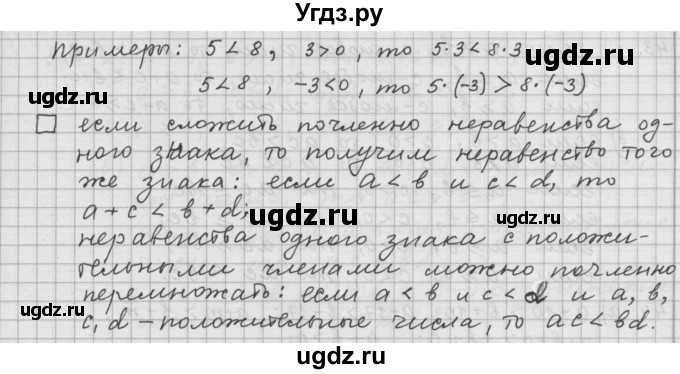 Угдз.ру
примеры: 5 < 8, 3 > 0, то 5·3 < 8·3.
5 < 8, -3 < 0, то 5·(-3) > 8·(-3)
□ если сложить почленно неравенства од-
ного знака, то получим неравенство того
же знака: если a < b и c < d, то
a + c < b + d;
неравенства одного знака с положи-
тельными членами можно почленно
перемножать: если a < b и c < d и a, b,
c, d – положительные числа, то ac < bd.
ugdz.ru
ugdz.ru
ugdz.ru
ugdz.ru
ugdz.ru
ugdz.ru
ugdz.ru
ugdz.ru